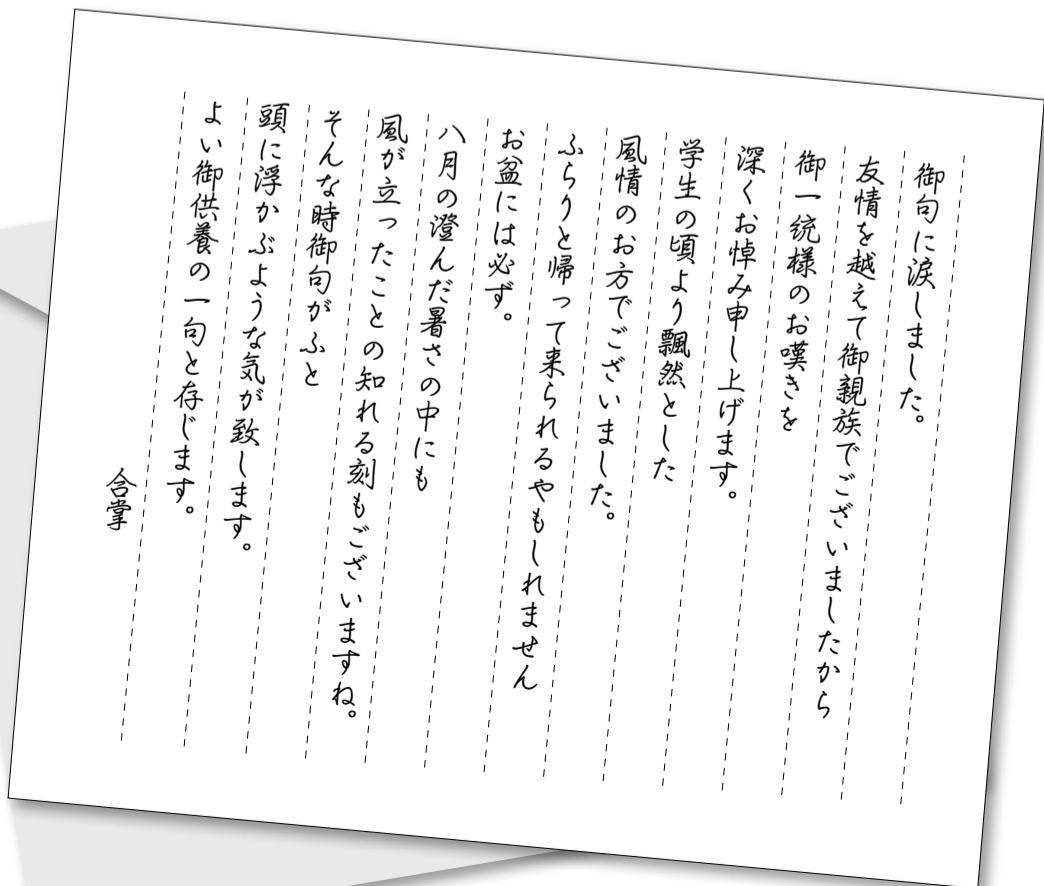 御句に涙しました。
友情を越えて御親族でございましたから
御一統様のお嘆きを
深くお悼み申し上げます。
学生の頃より飄然とした
風情のお方でございました。
ふらりと帰って来られるやもしれません
お盆には必ず。
八月の澄んだ暑さの中にも
風が立ったことの知れる刻もございますね。
そんな時御句がふと
頭に浮かぶような気が致します。
よい御供養の一句と存じます。
合掌